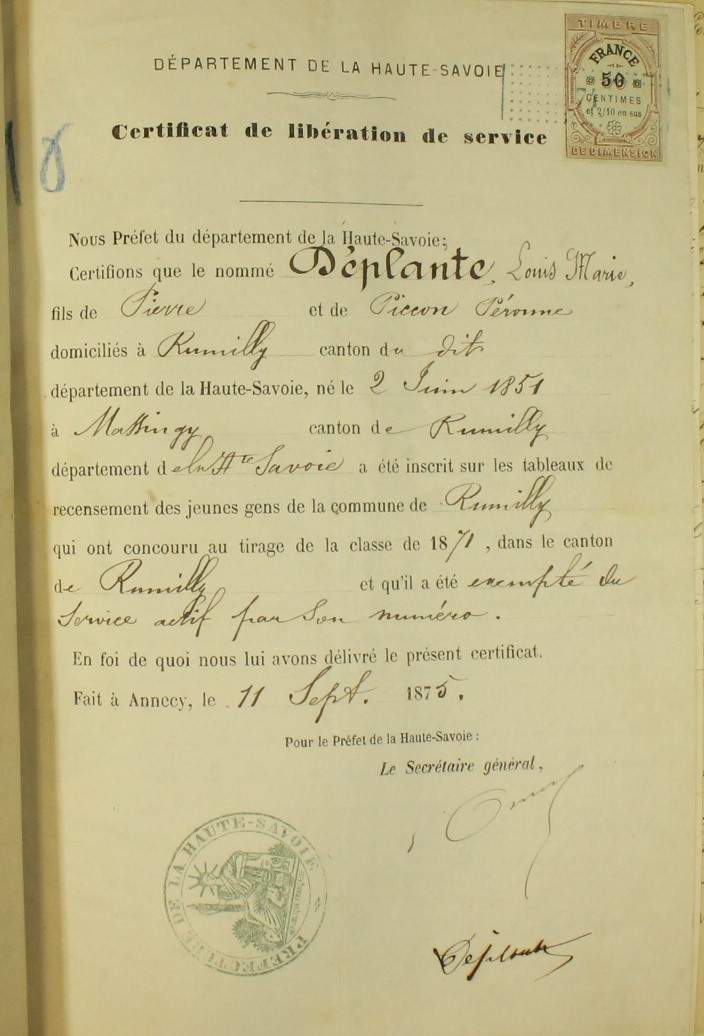 DÉPARTEMENT DE LA HAUTE-SAVOIE
TIMBRE
FRANCE
50
CENTIMES
et 2/10 en sus
DE DIMENSION
Certificat de libération de service
8
Nous Préfet du département de la Haute-Savoie;
Certifions que le nommé Déplante, Louis Marie,
fils de Pierre et de Piccon Péronne
domiciliés à Rumilly canton du dit
département de la Haute-Savoie, né le 2 Juin 1851
à Massingy canton de Rumilly
département de la Hte Savoie a été inscrit sur les tableaux de
recensement des jeunes gens de la commune de Rumilly
qui ont concouru au tirage de la classe de 1871, dans le canton
de Rumilly et qu'il a été exempté du
Service actif par son numéro.
En foi de quoi nous lui avons délivré le présent certificat.
Fait à Annecy, le 11 Sept. 1875.
Pour le Préfet de la Haute-Savoie :
Le Secrétaire général,
PRÉFECTURE DE LA HAUTE-SAVOIE
Déplante